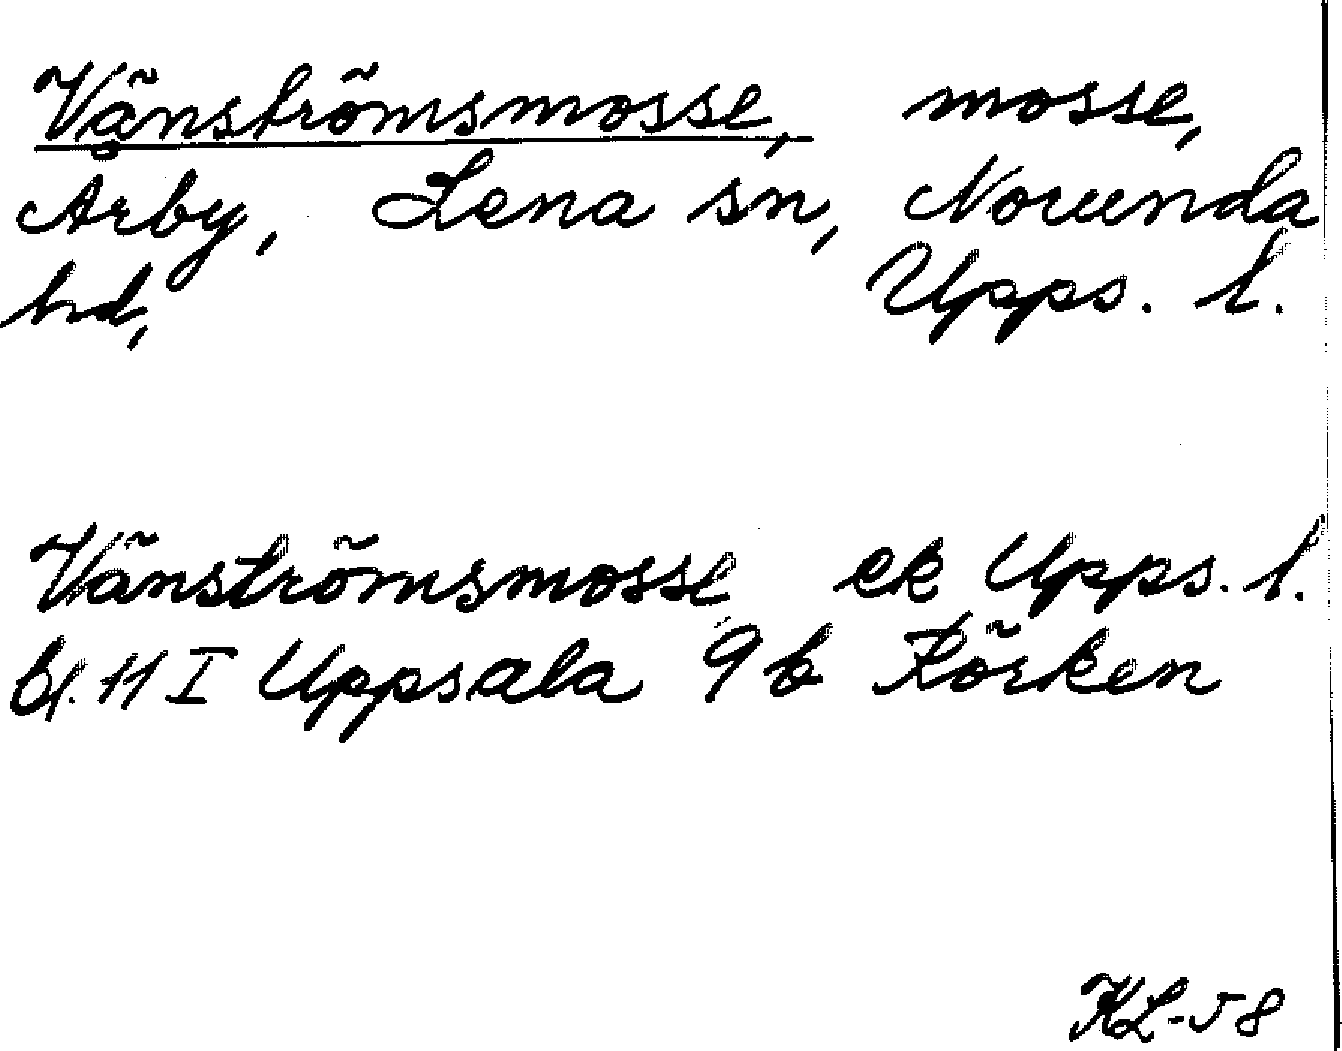 Vänströmsmosse, mosse,
Årby, Lena sn, Norunda
hd, Upps. l.
Vänströmsmosse ek Upps. l.
bl. 11 I Uppsala 9 b Körken
KL-58